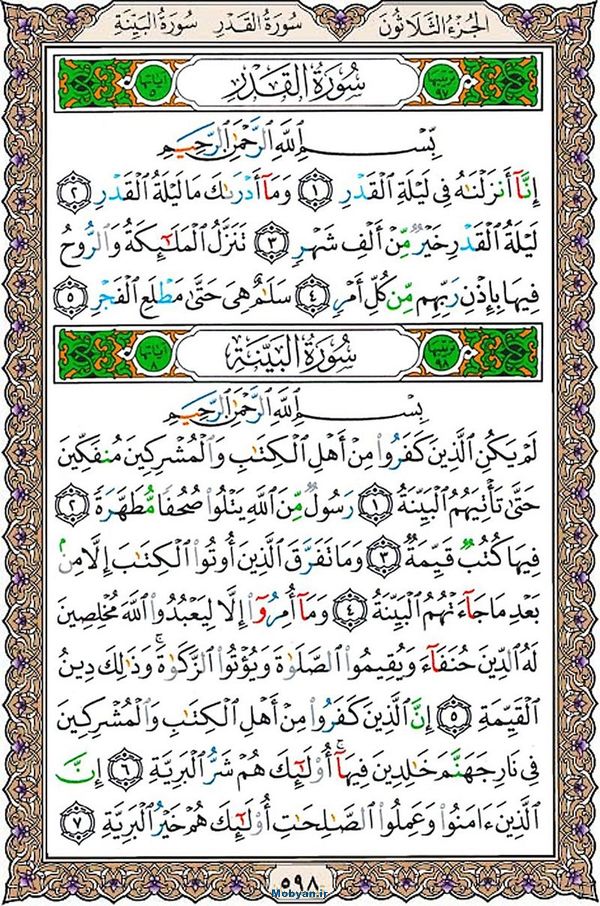 الجُزءُ الثَّلاثُونَ سُورَةُ القَدْرِ سُورَةُ البَيِّنَةِ
ترتيبها ٩٧ سُورَةُ القَدْرِ آياتها ٥
بِسْمِ ٱللَّهِ ٱلرَّحْمَٰنِ ٱلرَّحِيمِ
إِنَّآ أَنزَلْنَٰهُ فِى لَيْلَةِ ٱلْقَدْرِ ١ وَمَآ أَدْرَىٰكَ مَا لَيْلَةُ ٱلْقَدْرِ ٢
لَيْلَةُ ٱلْقَدْرِ خَيْرٌ مِّنْ أَلْفِ شَهْرٍ ٣ تَنَزَّلُ ٱلْمَلَٰٓئِكَةُ وَٱلرُّوحُ
فِيهَا بِإِذْنِ رَبِّهِم مِّن كُلِّ أَمْرٍ ٤ سَلَٰمٌ هِىَ حَتَّىٰ مَطْلَعِ ٱلْفَجْرِ ٥
ترتيبها ٩٨ سُورَةُ البَيِّنَةِ آياتها ٨
بِسْمِ ٱللَّهِ ٱلرَّحْمَٰنِ ٱلرَّحِيمِ
لَمْ يَكُنِ ٱلَّذِينَ كَفَرُوا۟ مِنْ أَهْلِ ٱلْكِتَٰبِ وَٱلْمُشْرِكِينَ مُنفَكِّينَ
حَتَّىٰ تَأْتِيَهُمُ ٱلْبَيِّنَةُ ١ رَسُولٌ مِّنَ ٱللَّهِ يَتْلُوا۟ صُحُفًا مُّطَهَّرَةً ٢
فِيهَا كُتُبٌ قَيِّمَةٌ ٣ وَمَا تَفَرَّقَ ٱلَّذِينَ أُوتُوا۟ ٱلْكِتَٰبَ إِلَّا مِنۢ
بَعْدِ مَا جَآءَتْهُمُ ٱلْبَيِّنَةُ ٤ وَمَآ أُمِرُوٓا۟ إِلَّا لِيَعْبُدُوا۟ ٱللَّهَ مُخْلِصِينَ
لَهُ ٱلدِّينَ حُنَفَآءَ وَيُقِيمُوا۟ ٱلصَّلَوٰةَ وَيُؤْتُوا۟ ٱلزَّكَوٰةَ ۚ وَذَٰلِكَ دِينُ
ٱلْقَيِّمَةِ ٥ إِنَّ ٱلَّذِينَ كَفَرُوا۟ مِنْ أَهْلِ ٱلْكِتَٰبِ وَٱلْمُشْرِكِينَ
فِى نَارِ جَهَنَّمَ خَٰلِدِينَ فِيهَآ ۚ أُو۟لَٰٓئِكَ هُمْ شَرُّ ٱلْبَرِيَّةِ ٦ إِنَّ
ٱلَّذِينَ ءَامَنُوا۟ وَعَمِلُوا۟ ٱلصَّٰلِحَٰتِ أُو۟لَٰٓئِكَ هُمْ خَيْرُ ٱلْبَرِيَّةِ ٧
٥٩٨
Mobyan.ir